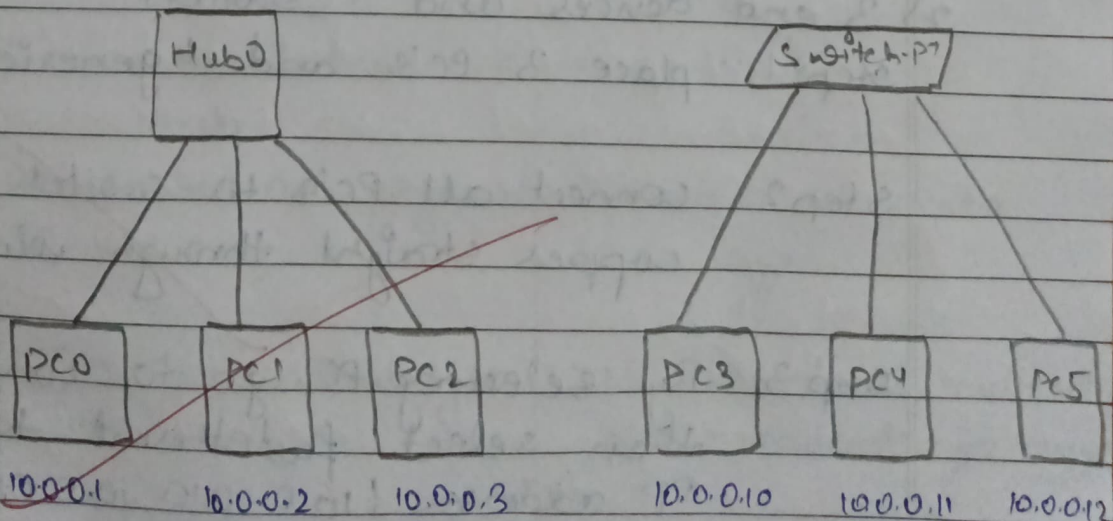 Hub0 Switch-PT
PC0 PC1 PC2 PC3 PC4 PC5
10.0.0.1 10.0.0.2 10.0.0.3 10.0.0.10 10.0.0.11 10.0.0.12